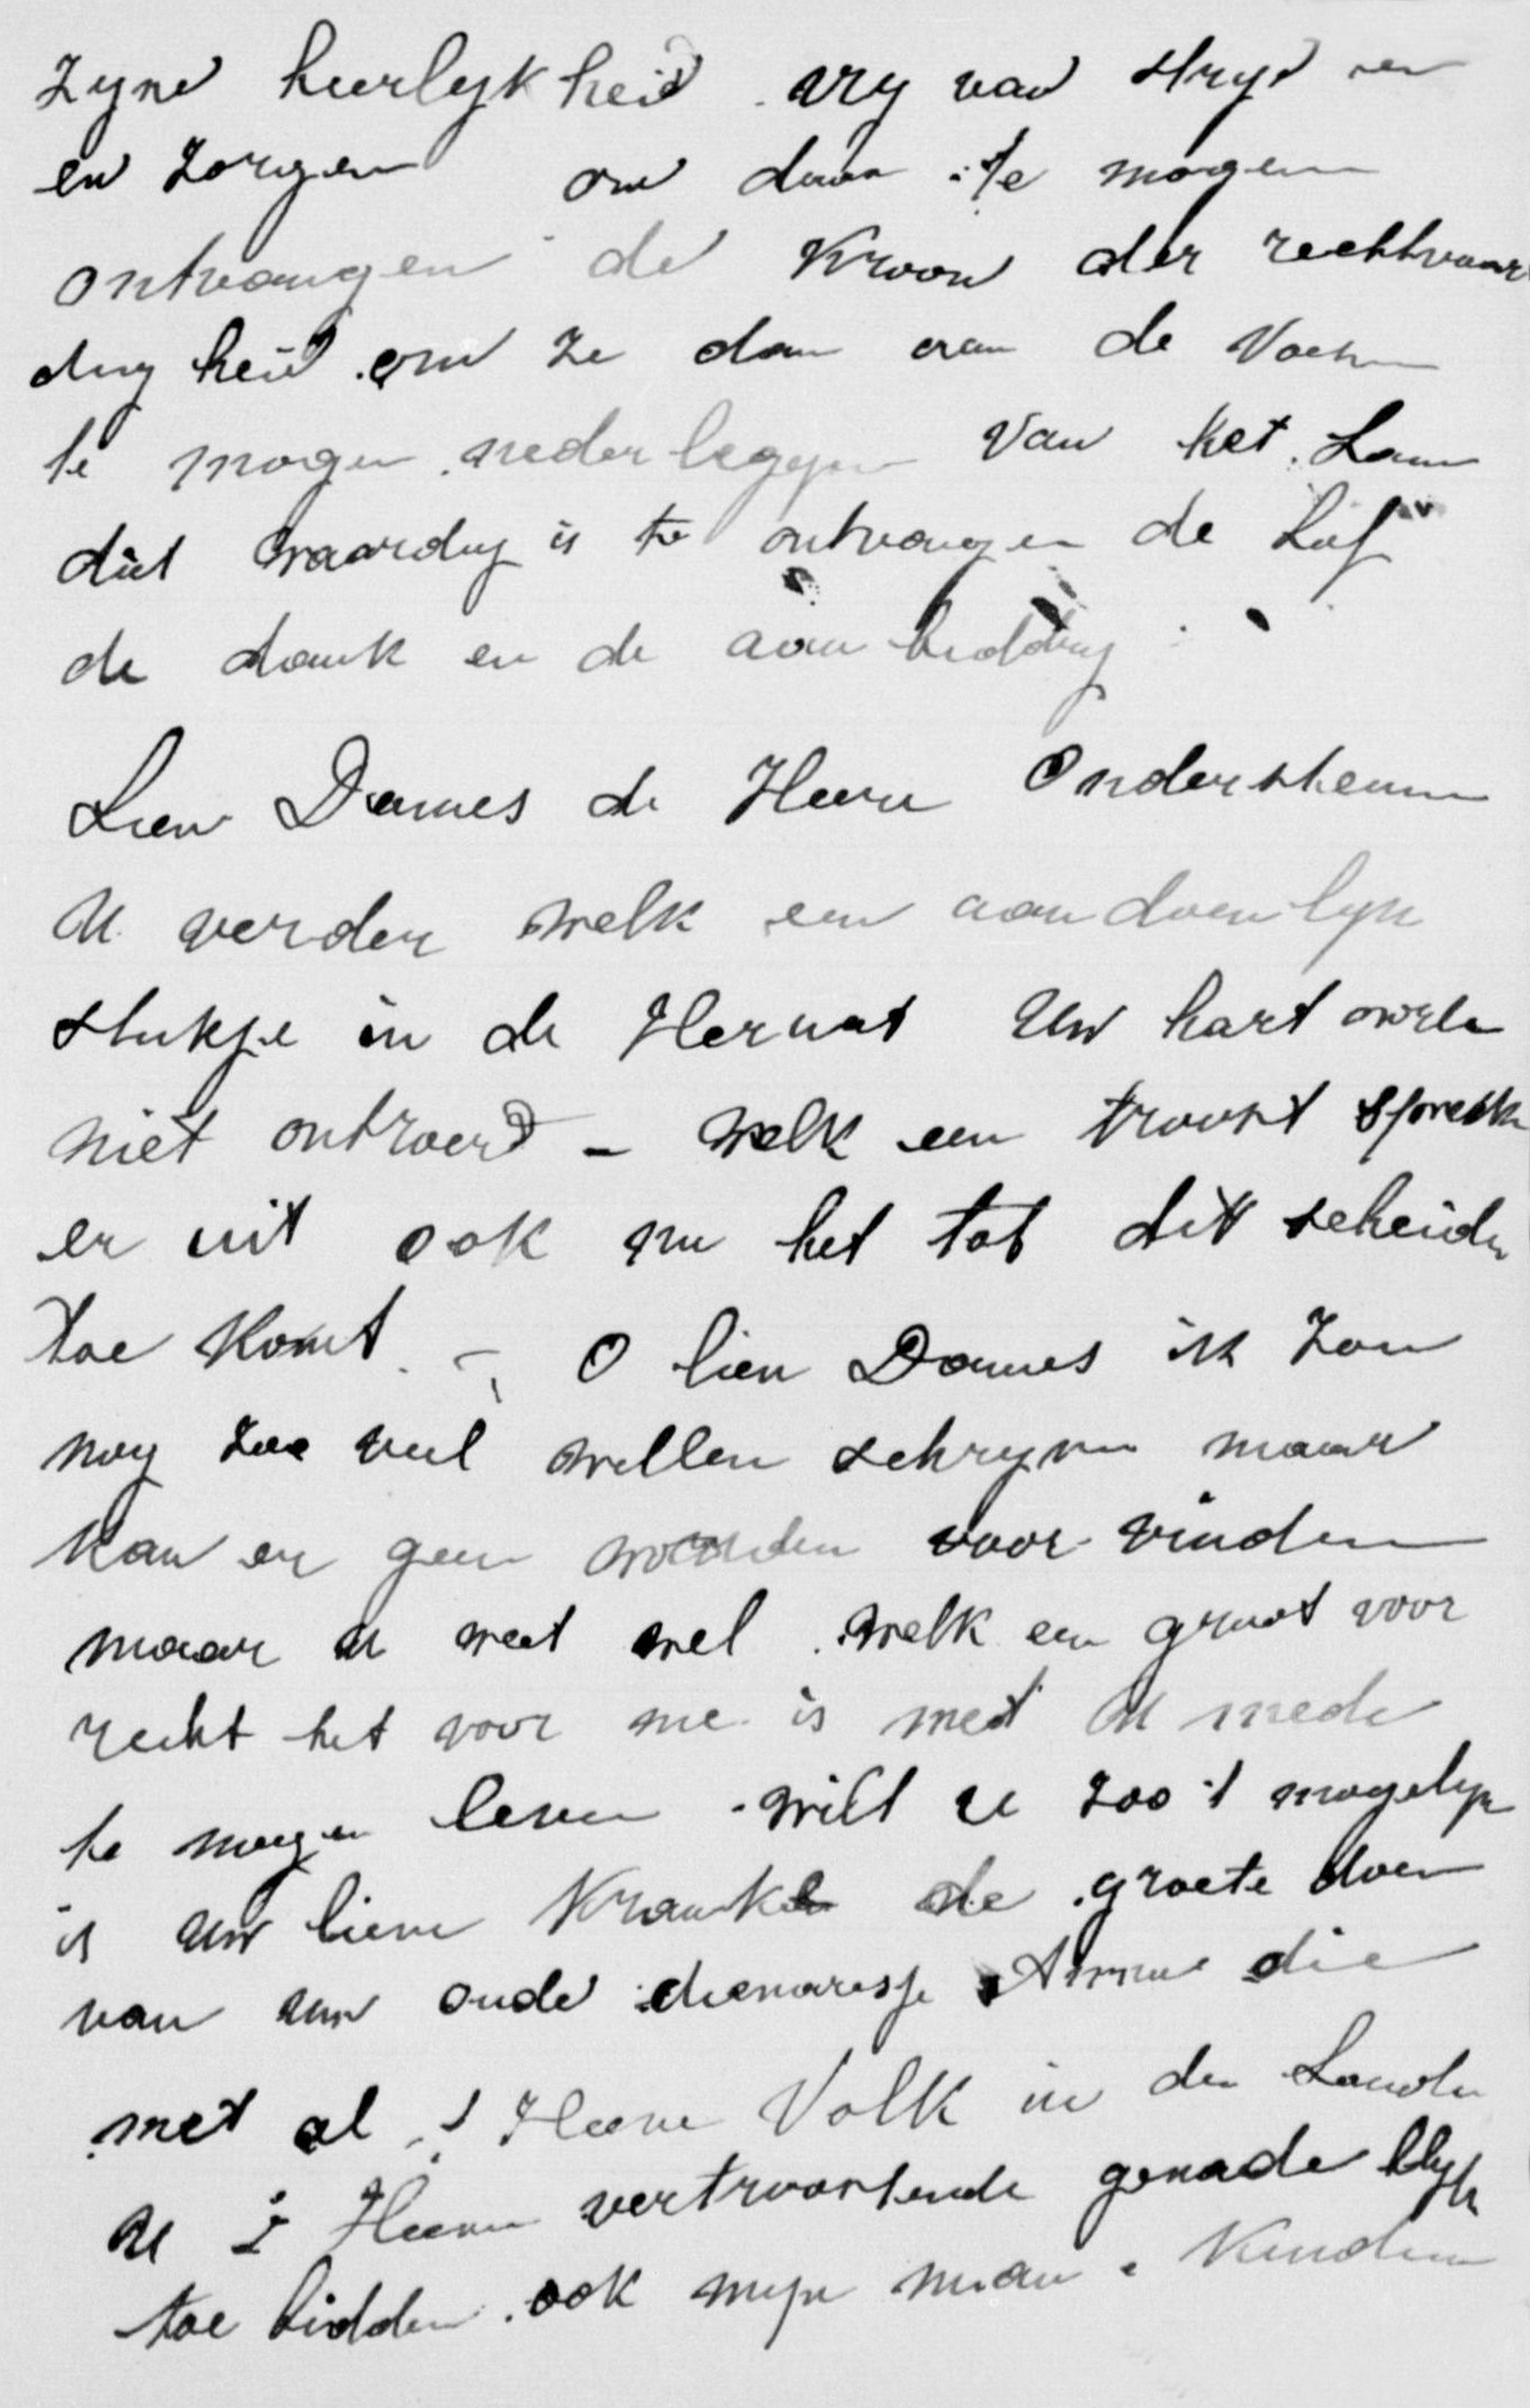 Zyne heerlykheid vry van stryd en
en zorgen om daar te mogen
ontvangen de Kroon der rechtvaar
dig heid om ze dan aan de Voeten
te mogen neder leggen Van het Lam
dat waardig is te ontvangen de Lof
de dank en de aan bidding
Lieve Dames de Heere Ondersteune
U verder welk een aandoenlyk
stukje in de Heraut Uw hart worde
niet ontroerd – welk een troost spreekt
er uit ook nu het tot dit scheiden
toe komt – O lieve Dames ik zou
nog zoo veel willen schryven maar
kan er geen woorden voor vinden
maar u weet wel welk een groot voor
recht het voor me is met U mede
te mogen leven wilt u zoo 't mogelyk
is uw lieve Kranke de groete doen
van uw oude dienaresse Annue die
met al 's Heeren Volk in den Lande
U 's Heeren vertroostende genade blyft
toe bidden ook myn man & Kinderen